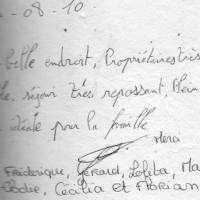 - 08 - 10 -
belle endroit, Propriétaires très
séjour très reposant, Plein
idéale pour la famille
Merci
Frédérique, Gérard, Lolita, Ma
Elodie, Cécilia et Florian